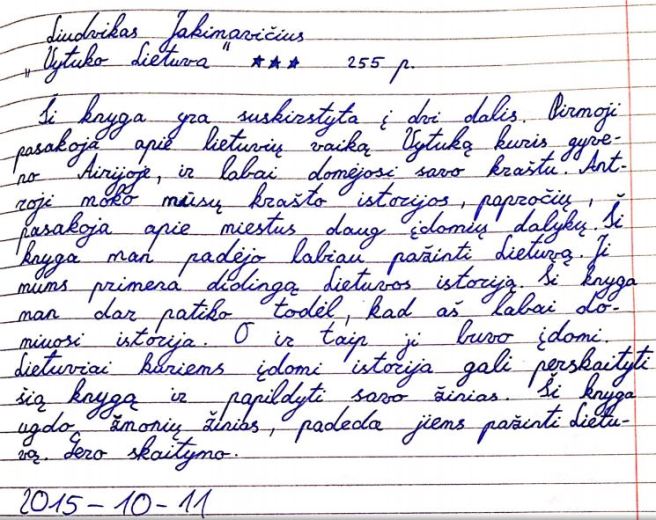 Liudvikas Jakimavičius
„Vytuko Lietuva“ ★★★ 255 p.
Ši knyga yra suskirstyta į dvi dalis. Pirmoji
pasakoja apie lietuvių vaiką Vytuką kuris gyve-
no Airijoje, ir labai domėjosi savo kraštu. Ant-
roji moko mūsų krašto istorijos, papročių,
pasakoja apie miestus daug įdomių dalykų. Ši
knyga man padėjo labiau pažinti Lietuvą. Ji
mums primena didingą Lietuvos istoriją. Ši knyga
man dar patiko todėl, kad aš labai do-
miuosi istorija. O ir taip ji buvo įdomi.
Lietuviai kuriems įdomi istorija gali perskaityti
šią knygą ir papildyti savo žinias. Ši knyga
ugdo žmonių žinias, padeda jiems pažinti Lietu-
vą. Gero skaitymo.
2015-10-11